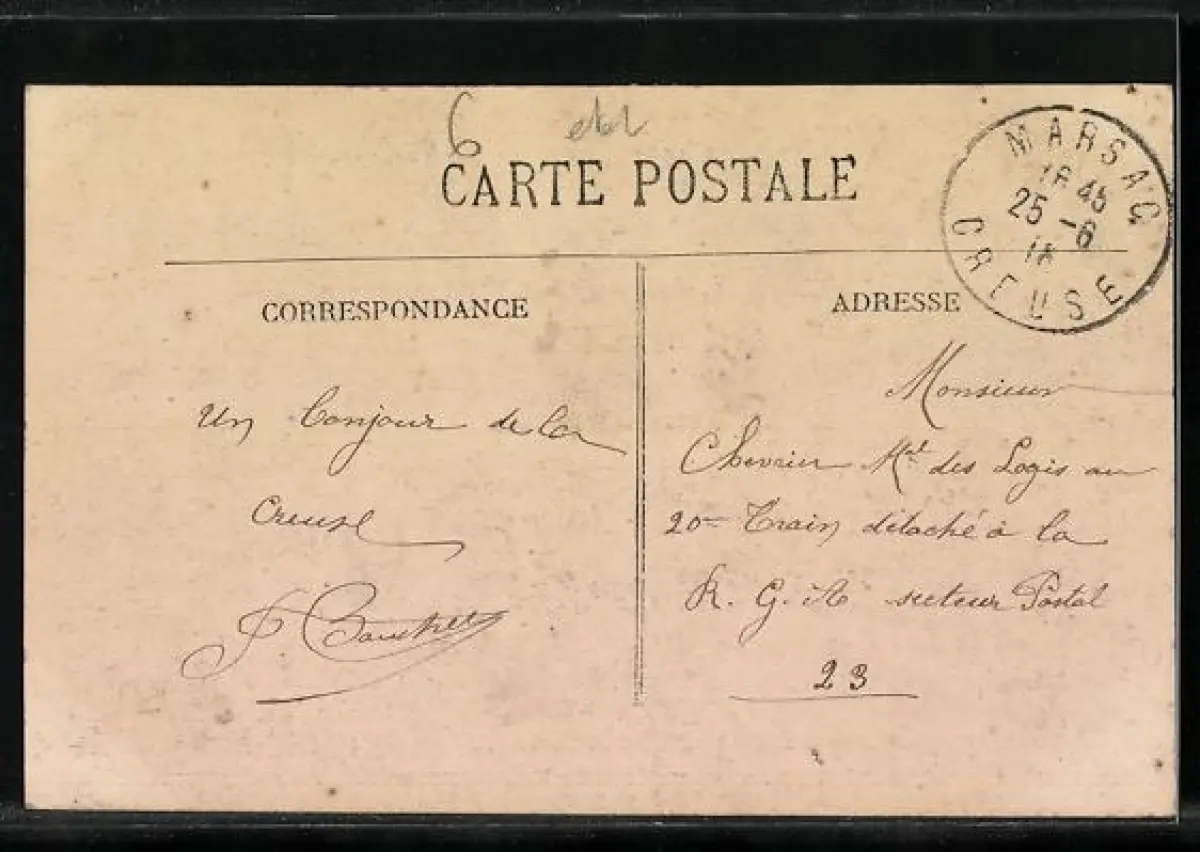 6
CARTE POSTALE
MARSAC
18 45
25 -6
CREUSE
CORRESPONDANCE
ADRESSE
Un bonjour de la
Creuse
Monsieur
Chevrier Mal des Logis au
20me Train détaché à la
R. G. A secteur Postal
23